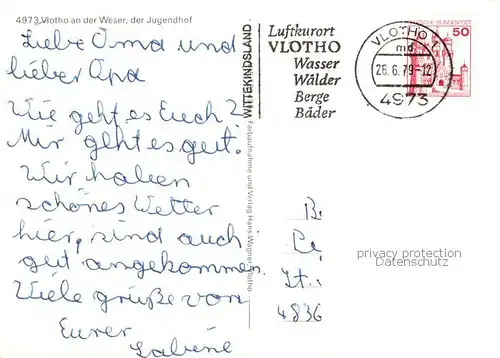 4973 Vlotho an der Weser, der Jugendhof
Liebe Oma und
lieber Opa
Wie geht es Euch?
Mir geht es gut.
Wir haben
schönes Wetter
hier, sind auch
gut angekommen.
Viele grüße von
Eurer
Sabine
WITTEKINDSLAND
Farbaufnahme und Verlag Hans Wagner, Vlotho
Luftkurort
VLOTHO
Wasser
Wälder
Berge
Bäder
VLOTHO 1
md
26.6.79-12
4973
DEUTSCHE BUNDESPOST
50
B
privacy protection
Datenschutz
4836